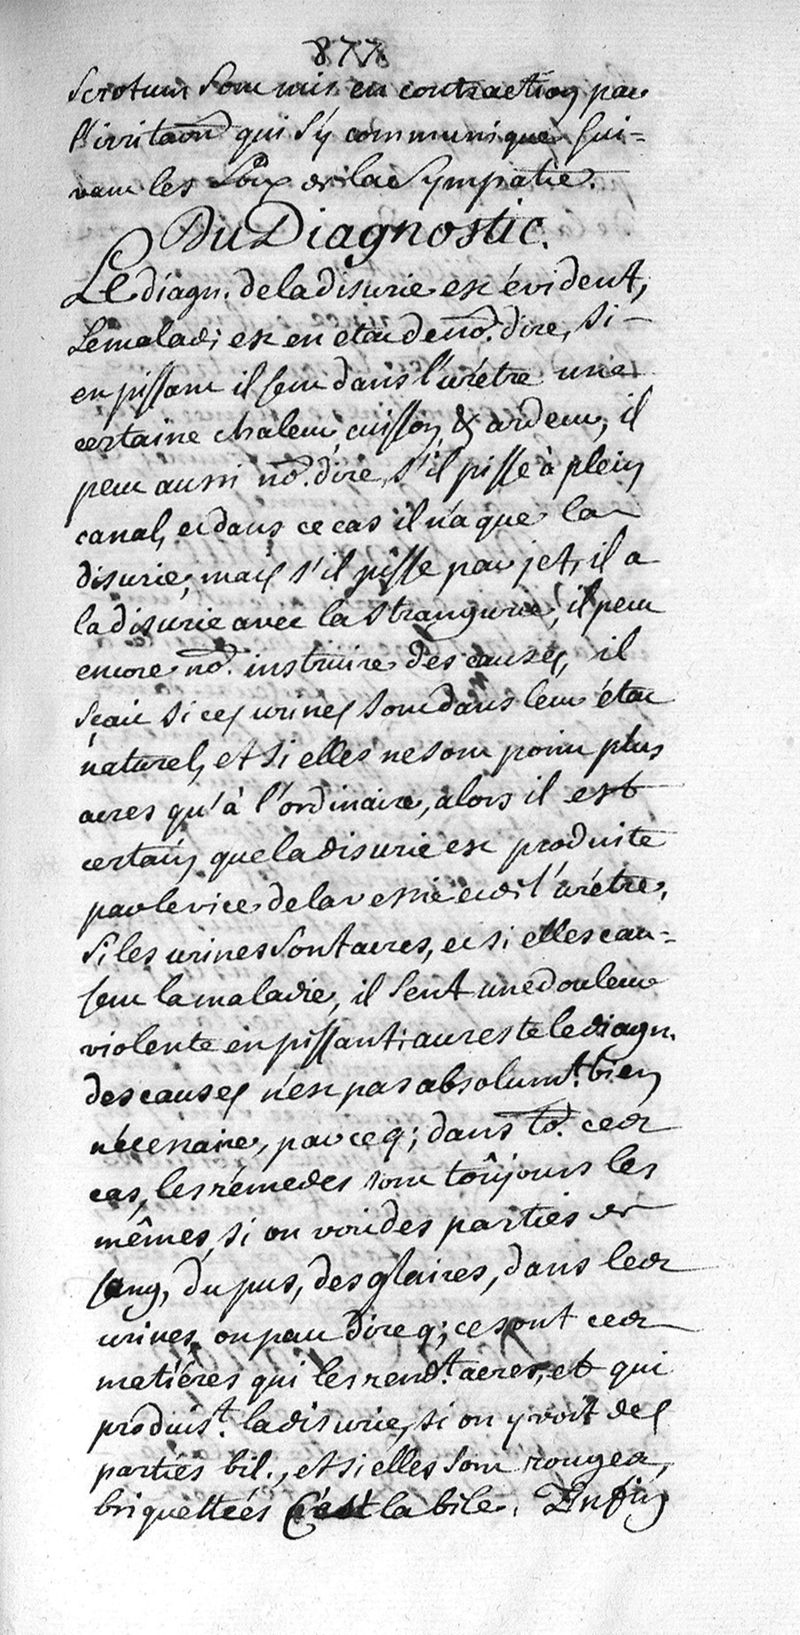 877
Scrotum sont mis en contraction par
l'irritaõn qui s'y communique sui=
vant les Loix de la Sympatie.
Du Diagnostic.
Le diagn. de la disurie est évident,
Le malade est en etat de no.s dire, si
en pissant il sent dans l'urétre une
certaine chaleur, cuisson, & ardeur, il
peut aussi no.s dire, s'il pisse à plein
canal, et dans ce cas il n'a que la
disurie, mais s'il pisse par jet, il a
la disurie avec la strangurie, il peut
encore no.s instruire des causes, il
sçait si ces urines sont dans leur état
naturel, et si elles ne sont point plus
acres qu'à l'ordinaire, alors il est
certain que la disurie est produite
par le vice de la vessie et de l'urétre,
Si les urines sont acres, et si elles cau=
sent la maladie, il sent une douleur
violente en pissant: au reste le diagn.
des causes n'est pas absolum.t bien
nécessaire, parce q; dans to.s ces
cas, les rémedes sont toûjours les
mêmes, si on voit des parties de
sang, du pus, des glaires, dans les
urines, on peut dire q; ce sont ces
metiéres qui les rend.t acres, et qui
produis.t la disurie, si on y voit des
parties bil., et si elles sont rouges,
briquettées c'est la bile. Enfin